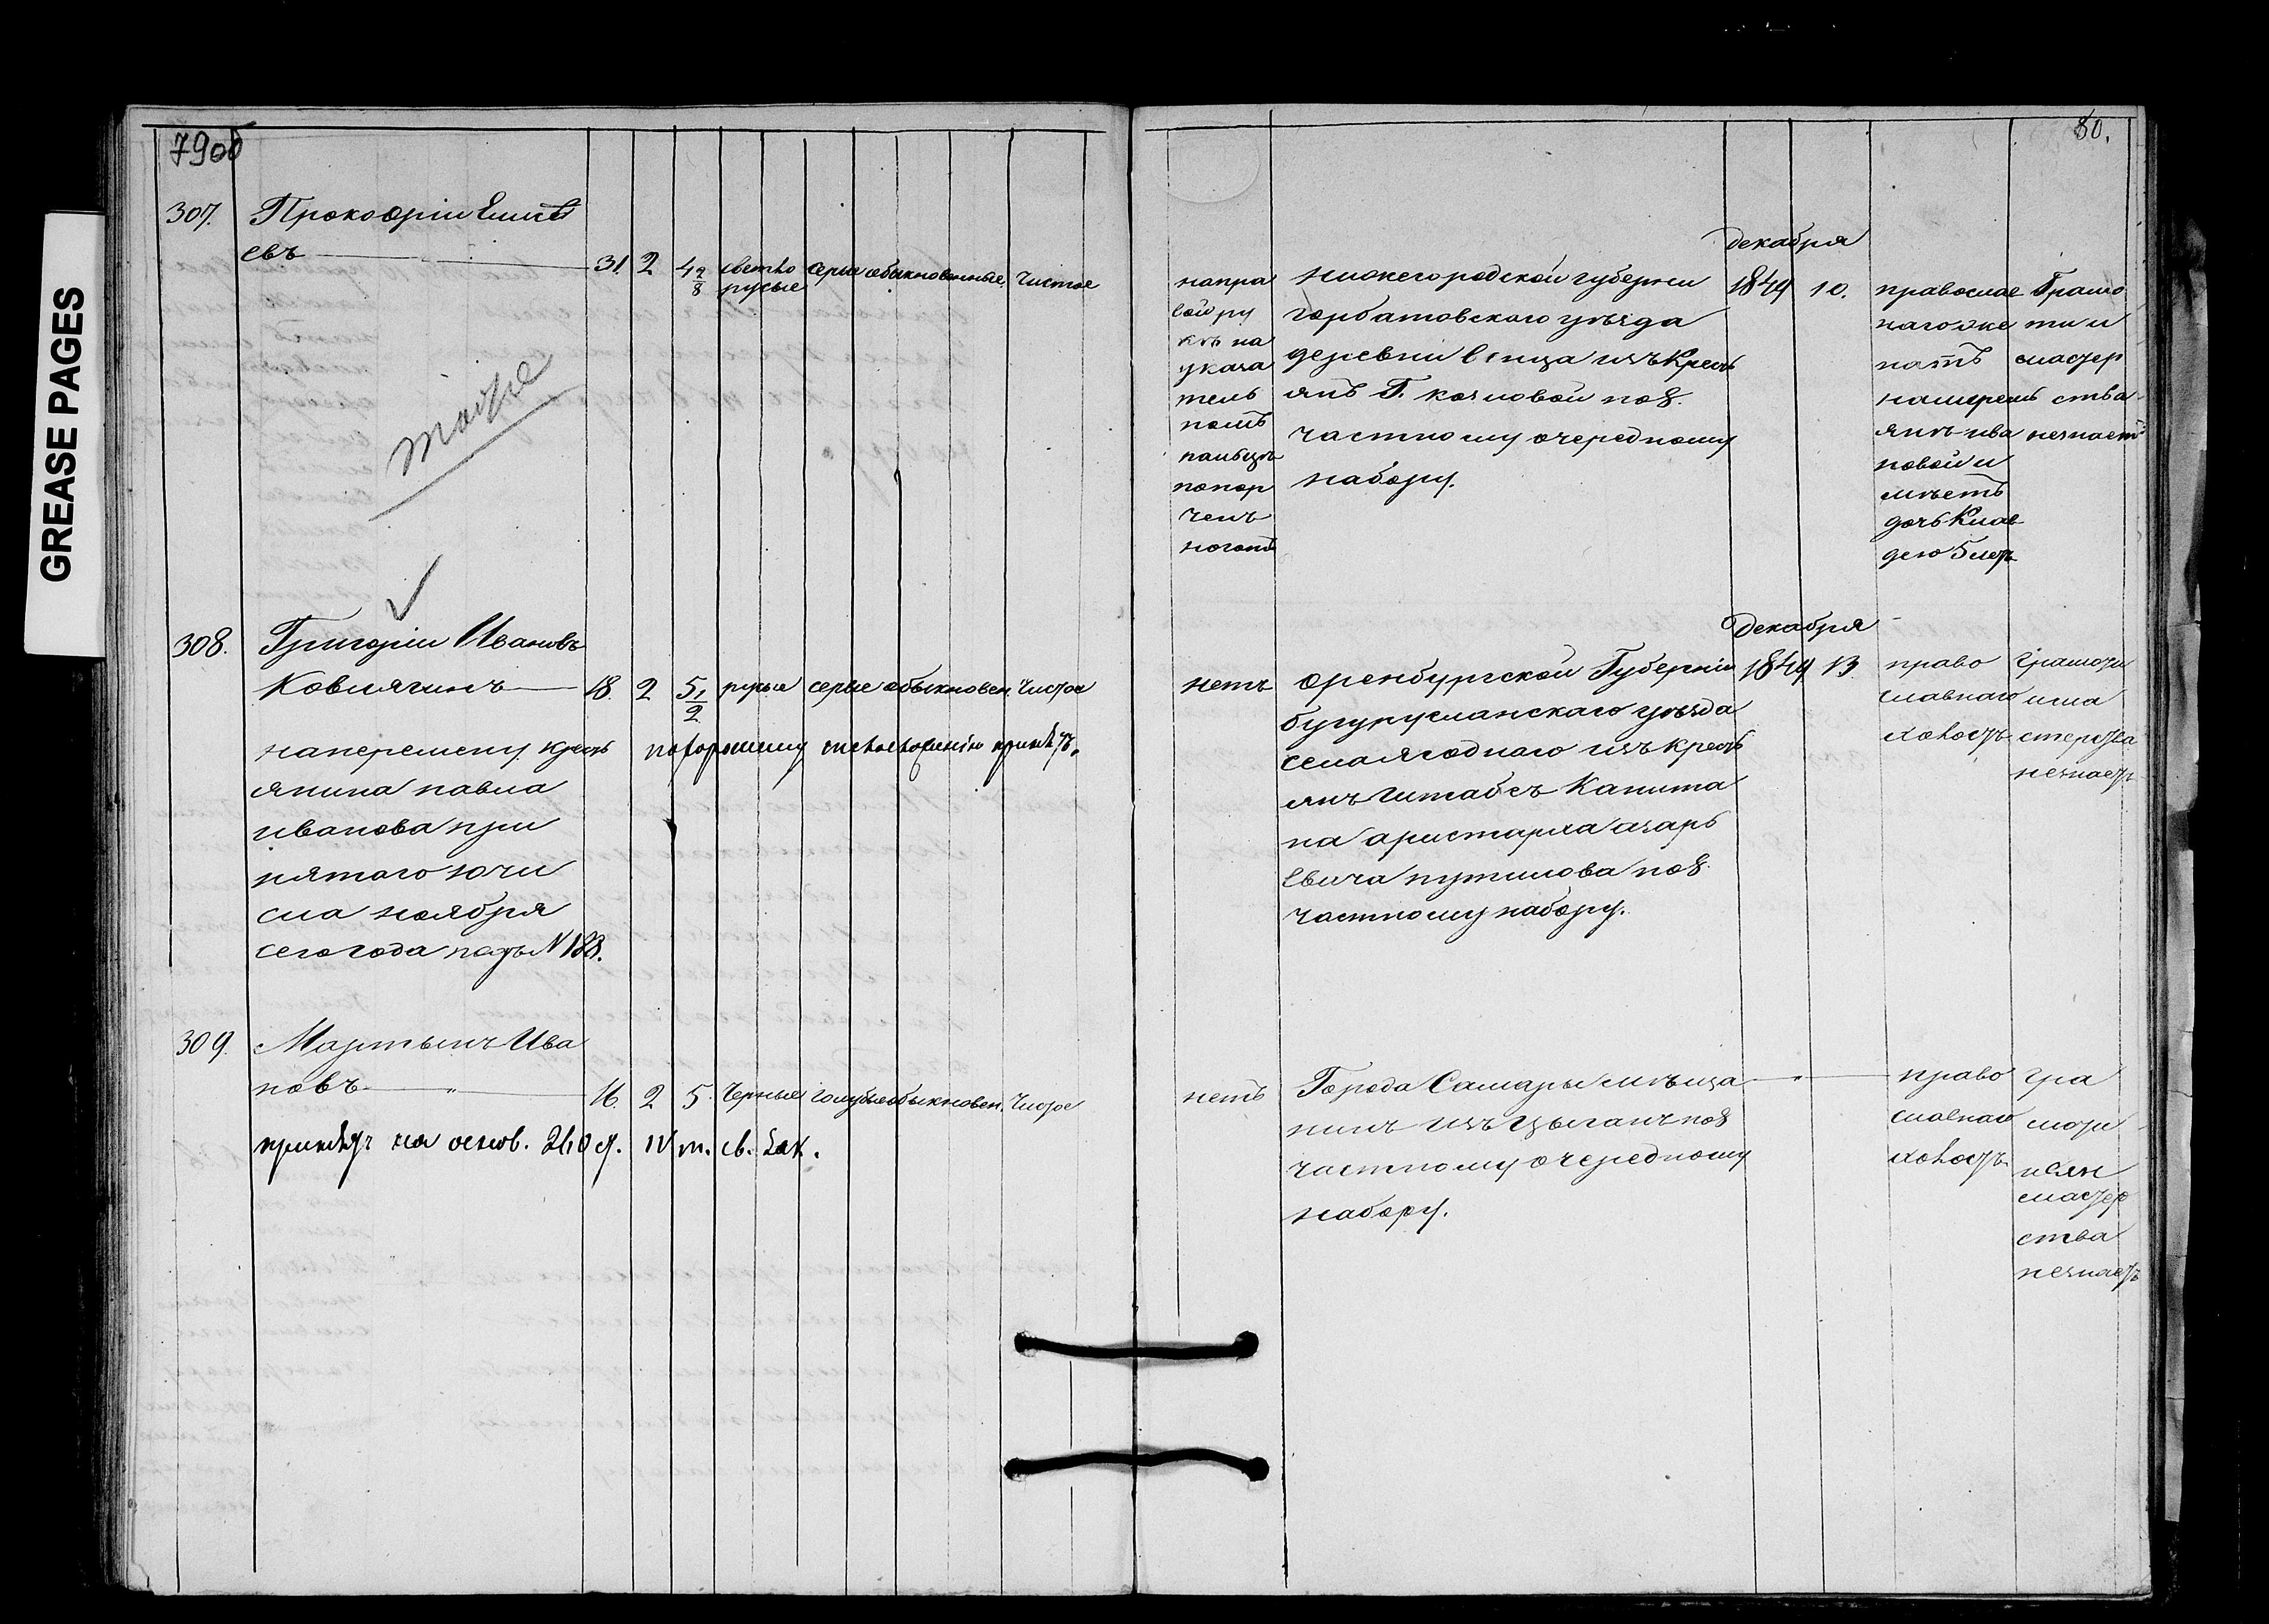 GREASE PAGES
79об
80.
307. Прокофiи Елисѣ
евъ 31. 2 4 2/8 светло русые серые обыкновенные. чистое
напра
вой ру
кѣ на
указа
тель
номъ
пальцѣ
попор
ченъ
ногать
нижегородской губерни
горбатовского уѣзда
деревни изъ Кресть
янъ Г. козловой по 8.
частному очередному
набору.
декабря
1849 10.
православ
наго же
натъ
на
янъ ива
новой и
мѣетъ
дочь Клав
дею 5 летъ
Грамо
ти и
мастер
ства
незнаетъ
308. Григорiи Ивановъ
Ковлягинъ 18. 2 5 1/2 русые серые обыкновен чистое
наперемену кресть
янина павла
иванова при
нятаго
сла ноября
сего года подъ N 188.
похорошему принятъ.
нетъ
оренбургской Губернiи
бугурусланскаго уѣзда
села ягоднаго изъ кресть
янъ Штабсъ Капита
на аристарха азарь
евича путилова по 8.
частному набору.
декабря
1849 13.
право
славнаго
холостъ
грамоти
и ма
стерства
незнаетъ
309. Мартынъ Ива
новъ 16. 2 5. Черные голубые обыкновен. Чистое
принятъ на основ. 260 с. IV т. св. Зак.
нетъ
Города Самары мѣща
нинъ изъ цыганъ по 8
частному очередному
набору.
право
славнаго
холостъ
гра
моти
мастер
ства
незнаетъ